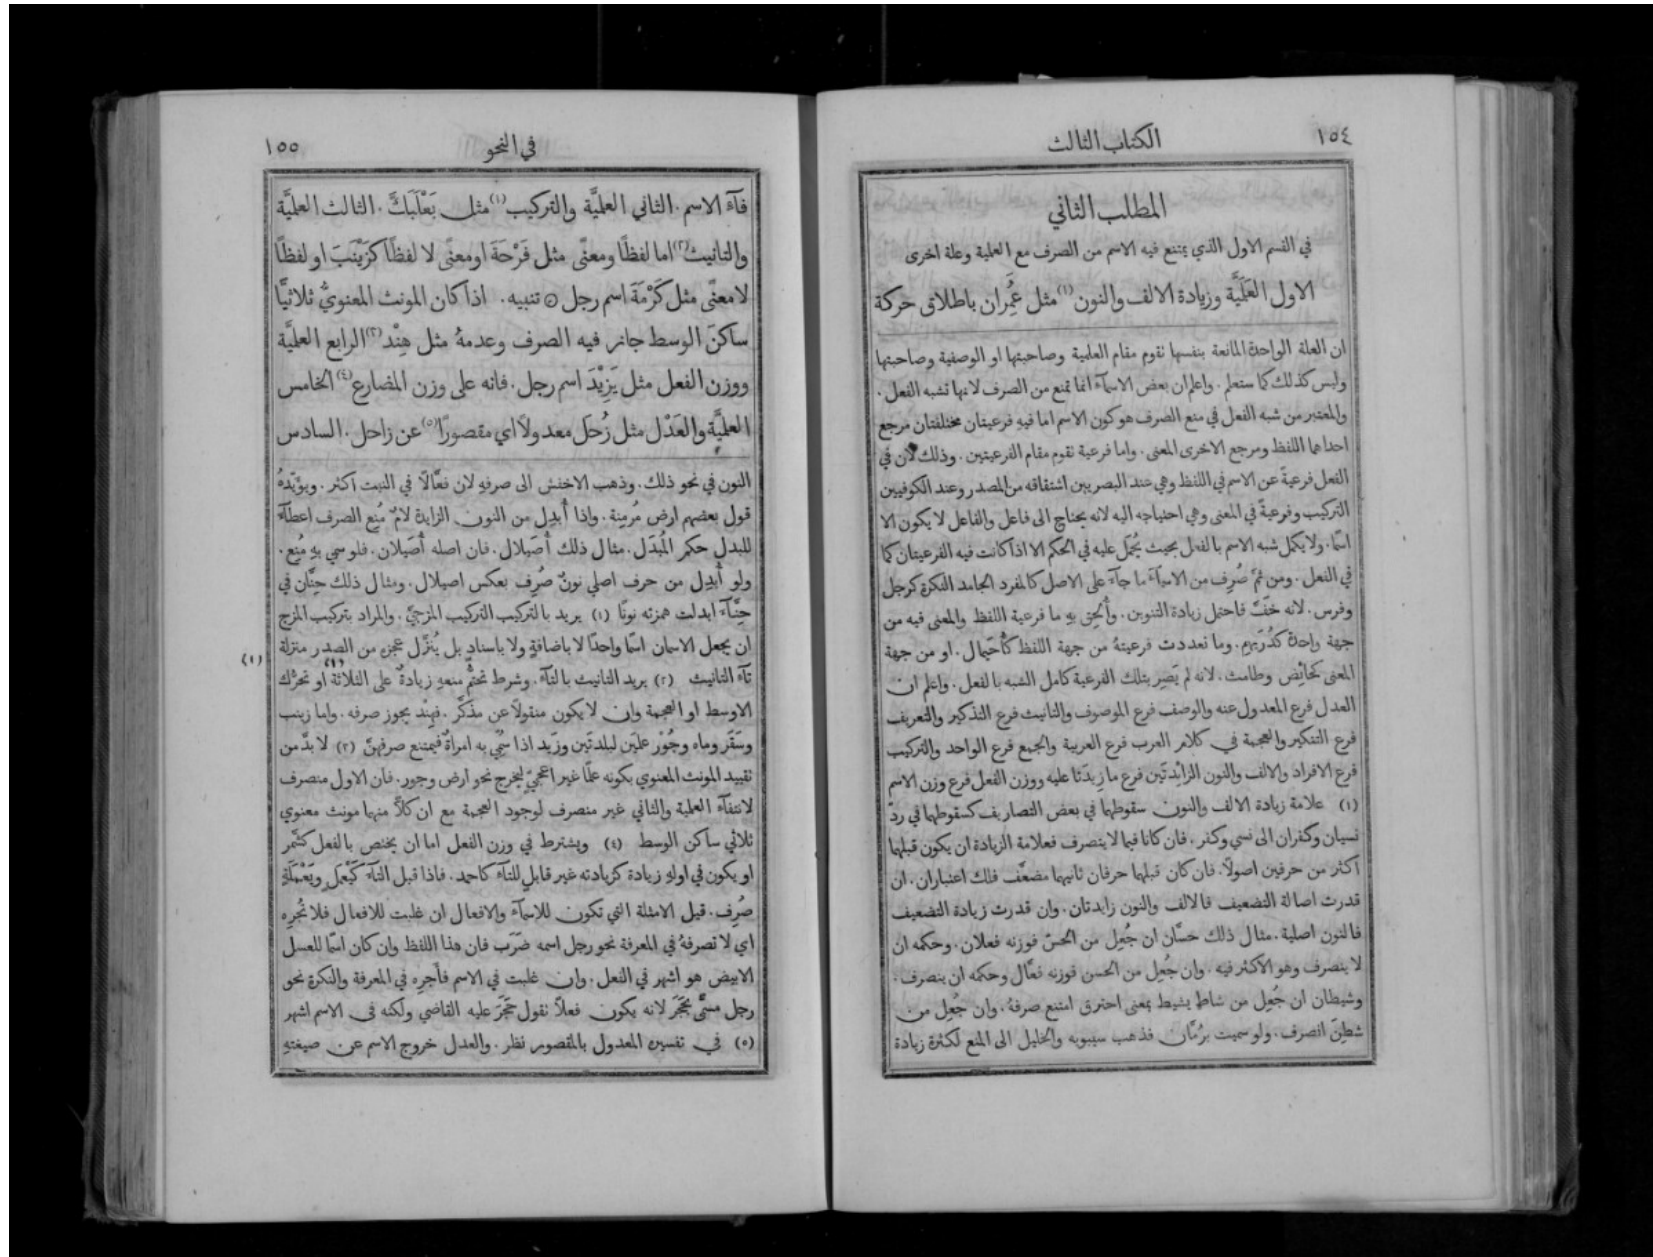 ١٥٤
الكتاب الثالث
المطلب الثاني
في القسم الاول الذي يمتنع فيه الاسم من الصرف مع العلمية وعلة اخرى
الاول العَلَميَّة وزيادة الالف والنون(١) مثل عِمْران باطلاق حركة
ان العلة الواحدة المانعة بنفسها تقوم مقام العلمية وصاحبتها او الوصفية وصاحبتها
وليس كذلك كما ستعلم . واعلم ان بعض الاسمآء انما تمنع من الصرف لانها تشبه الفعل .
والمعتبر من شبه الفعل في منع الصرف هو كون الاسم اما فيهِ فرعيتان مختلفتان مرجع
احداهما اللفظ ومرجع الاخرى المعنى . واما فرعية تقوم مقام الفرعيتين . وذلك لان في
الفعل فرعيةً عن الاسم في اللفظ وهي عند البصريين اشتقاقه من المصدر وعند الكوفيين
التركيب وفرعيةً في المعنى وهي احتياجه اليه لانه يحتاج الى فاعل والفاعل لا يكون الا
اسمًا . ولا يكمل شبه الاسم بالفعل بحيث يُحمَل عليه في الحكم الا اذا كانت فيه الفرعيتان كما
في الفعل . ومن ثمَّ صُرِف من الاسمآء ما جآء على الاصل كالمفرد الجامد النكرة كرجل
وفرس . لانه خَفَّ فاحتمل زيادة التنوين . وأُلحِق بهِ ما فرعية اللفظ والمعنى فيه من
جهة واحدة كدُرَيهم . وما تعددت فرعيتهُ من جهة اللفظ كأُجَيمال . او من جهة
المعنى كحائِض وطامث . لانه لم يَصِر بتلك الفرعية كامل الشبه بالفعل . واعلم ان
العدل فرع المعدول عنه والوصف فرع الموصوف والتانيث فرع التذكير والتعريف
فرع التنكير والعجمة في كلام العرب فرع العربية والجمع فرع الواحد والتركيب
فرع الافراد والالف والنون الزائِدتَين فرع ما زِيدَتا عليه ووزن الفعل فرع وزن الاسم
(١) علامة زيادة الالف والنون سقوطهما في بعض التصاريف كسقوطهما في ردّ
نسيان وكفران الى نسي وكفر . فان كانا فيما لا يتصرف فعلامة الزيادة ان يكون قبلهما
اكثر من حرفين اصولًا . فان كان قبلهما حرفان ثانيهما مضعَّف فلك اعتباران . ان
قدرت اصالة التضعيف فالالف والنون زايدتان . وان قدرت زيادة التضعيف
فالنون اصلية . مثال ذلك حسَّان ان جُعِل من الحسّ فوزنه فعلان . وحكمه ان
لا ينصرف وهو الاكثر فيه . وان جُعِل من الحسن فوزنه فعَّال وحكمه ان ينصرف .
وشيطان ان جُعِل من شاط يشيط بمعنى احترق امتنع صرفهُ . وان جُعِل من
شطن انصرف . ولو سميت برُمَّان فذهب سيبويه والخليل الى المنع لكثرة زيادة
في النحو
١٥٥
فآء الاسم . الثاني العلميَّة والتركيب(١) مثل بَعْلَبَكَّ . الثالث العلميَّة
والتانيث(٢) اما لفظًا ومعنًى مثل فَرْحَةَ او معنًى لا لفظًا كزَيْنَبَ او لفظًا
لا معنًى مثل كَرْمَةَ اسم رجل ۞ تنبيه . اذا كان المونث المعنويُّ ثلاثيًّا
ساكنَ الوسط جاز فيه الصرف وعدمهُ مثل هِنْد(٣) الرابع العلميَّة
ووزن الفعل مثل يَزِيْدَ اسم رجل . فانه على وزن المضارع(٤) الخامس
العلميَّة والعَدْل مثل زُحَل معدولًا اي مقصورًا(٥) عن زاحل . السادس
النون في نحو ذلك . وذهب الاخفش الى صرفهِ لان فعَّالًا في النبت اكثر . ويؤيّدهُ
قول بعضهم ارض مُرمِنة . واذا أُبدِل من النون الزايدة لامٌ مُنِع الصرف اعطآءً
للبدل حكم المُبدَل . مثال ذلك أُصَيلال . فان اصله أُصَيلان . فلو سمي بهِ مُنِع .
ولو أُبدِل من حرف اصلي نونٌ صُرِف بعكس اصيلال . ومثال ذلك حِنَّان في
حِنَّآء ابدلت همزته نونًا (١) يريد بالتركيب التركيب المزجيّ . والمراد بتركيب المزج
ان يجعل الاسمان اسمًا واحدًا لا باضافةٍ ولا باسنادٍ بل يُنزَّل عجزه من الصدر منزلة
تآء التانيث (٢) يريد التانيث بالتآء . وشرط تحتُّم منعهِ زيادةٌ على الثلاثة(١) او تحرُّك
(١)
الاوسط او العجمة وان لا يكون منقولًا عن مذكَّر . فهِنْد يجوز صرفه . واما زينب
وسَقَر وماه وجُوْر علمَين لبلدتَين وزَيد اذا سُمِّي به امراةٌ فيمتنع صرفهنَّ (٣) لا بدَّ من
تقييد المونث المعنوي بكونه علمًا غير اعجميّ ليخرج نحو ارض وجور . فان الاول منصرف
لانتفآء العلمية والثاني غير منصرف لوجود العجمة مع ان كلًّا منهما مونث معنوي
ثلاثي ساكن الوسط (٤) ويشترط في وزن الفعل اما ان يختص بالفعل كشَمَّر
او يكون في اولهِ زيادة كزيادته غير قابلٍ للتآء كاحمد . فاذا قبل التآء كَيَعْمَل ويَعْمَلَةٍ
صُرِف . قيل الامثلة التي تكون للاسمآء والافعال ان غلبت للافعال فلا تُجرِه
اي لا تصرفهُ في المعرفة نحو رجل اسمه ضَرَب فان هذا اللفظ وان كان اسمًا للعسل
الابيض هو اشهر في الفعل . وان غلبت في الاسم فأَجرِه في المعرفة والنكرة نحو
رجل مسمًّى بحَجَر لانه يكون فعلًا تقول حَجَرَ عليه القاضي ولكنه في الاسم اشهر
(٥) في تفسيره المعدول بالمقصور نظر . والعدل خروج الاسم عن صيغتهِ